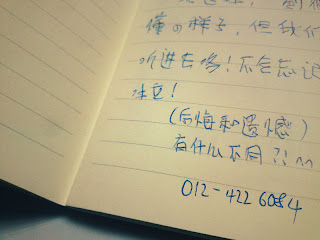 懂の样子，但我们
听进去哆！不会忘记
（后悔和遗憾）
有什么不同？！^^
012-422 6084